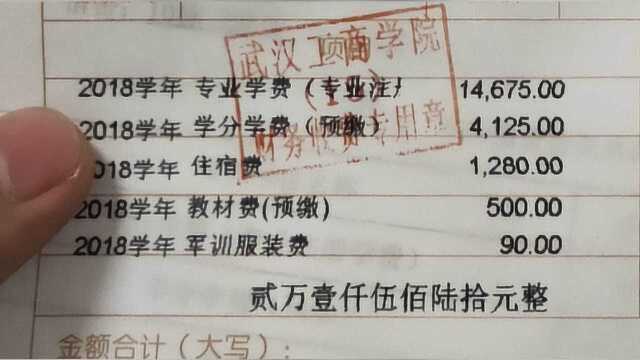 武汉工商学院
2018学年 专业学费（专业注 14,675.00
2018学年 学分学费（预缴） 4,125.00
财务收费专用章
2018学年 住宿费 1,280.00
2018学年 教材费(预缴) 500.00
2018学年 军训服装费 90.00
贰万壹仟伍佰陆拾元整
金额合计（大写）：